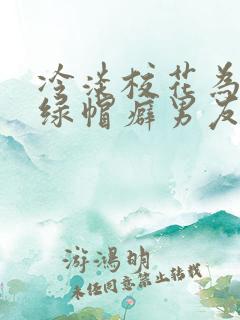 冷淡校花為
绿帽癖男友
游鴻明
未经同意禁止转载